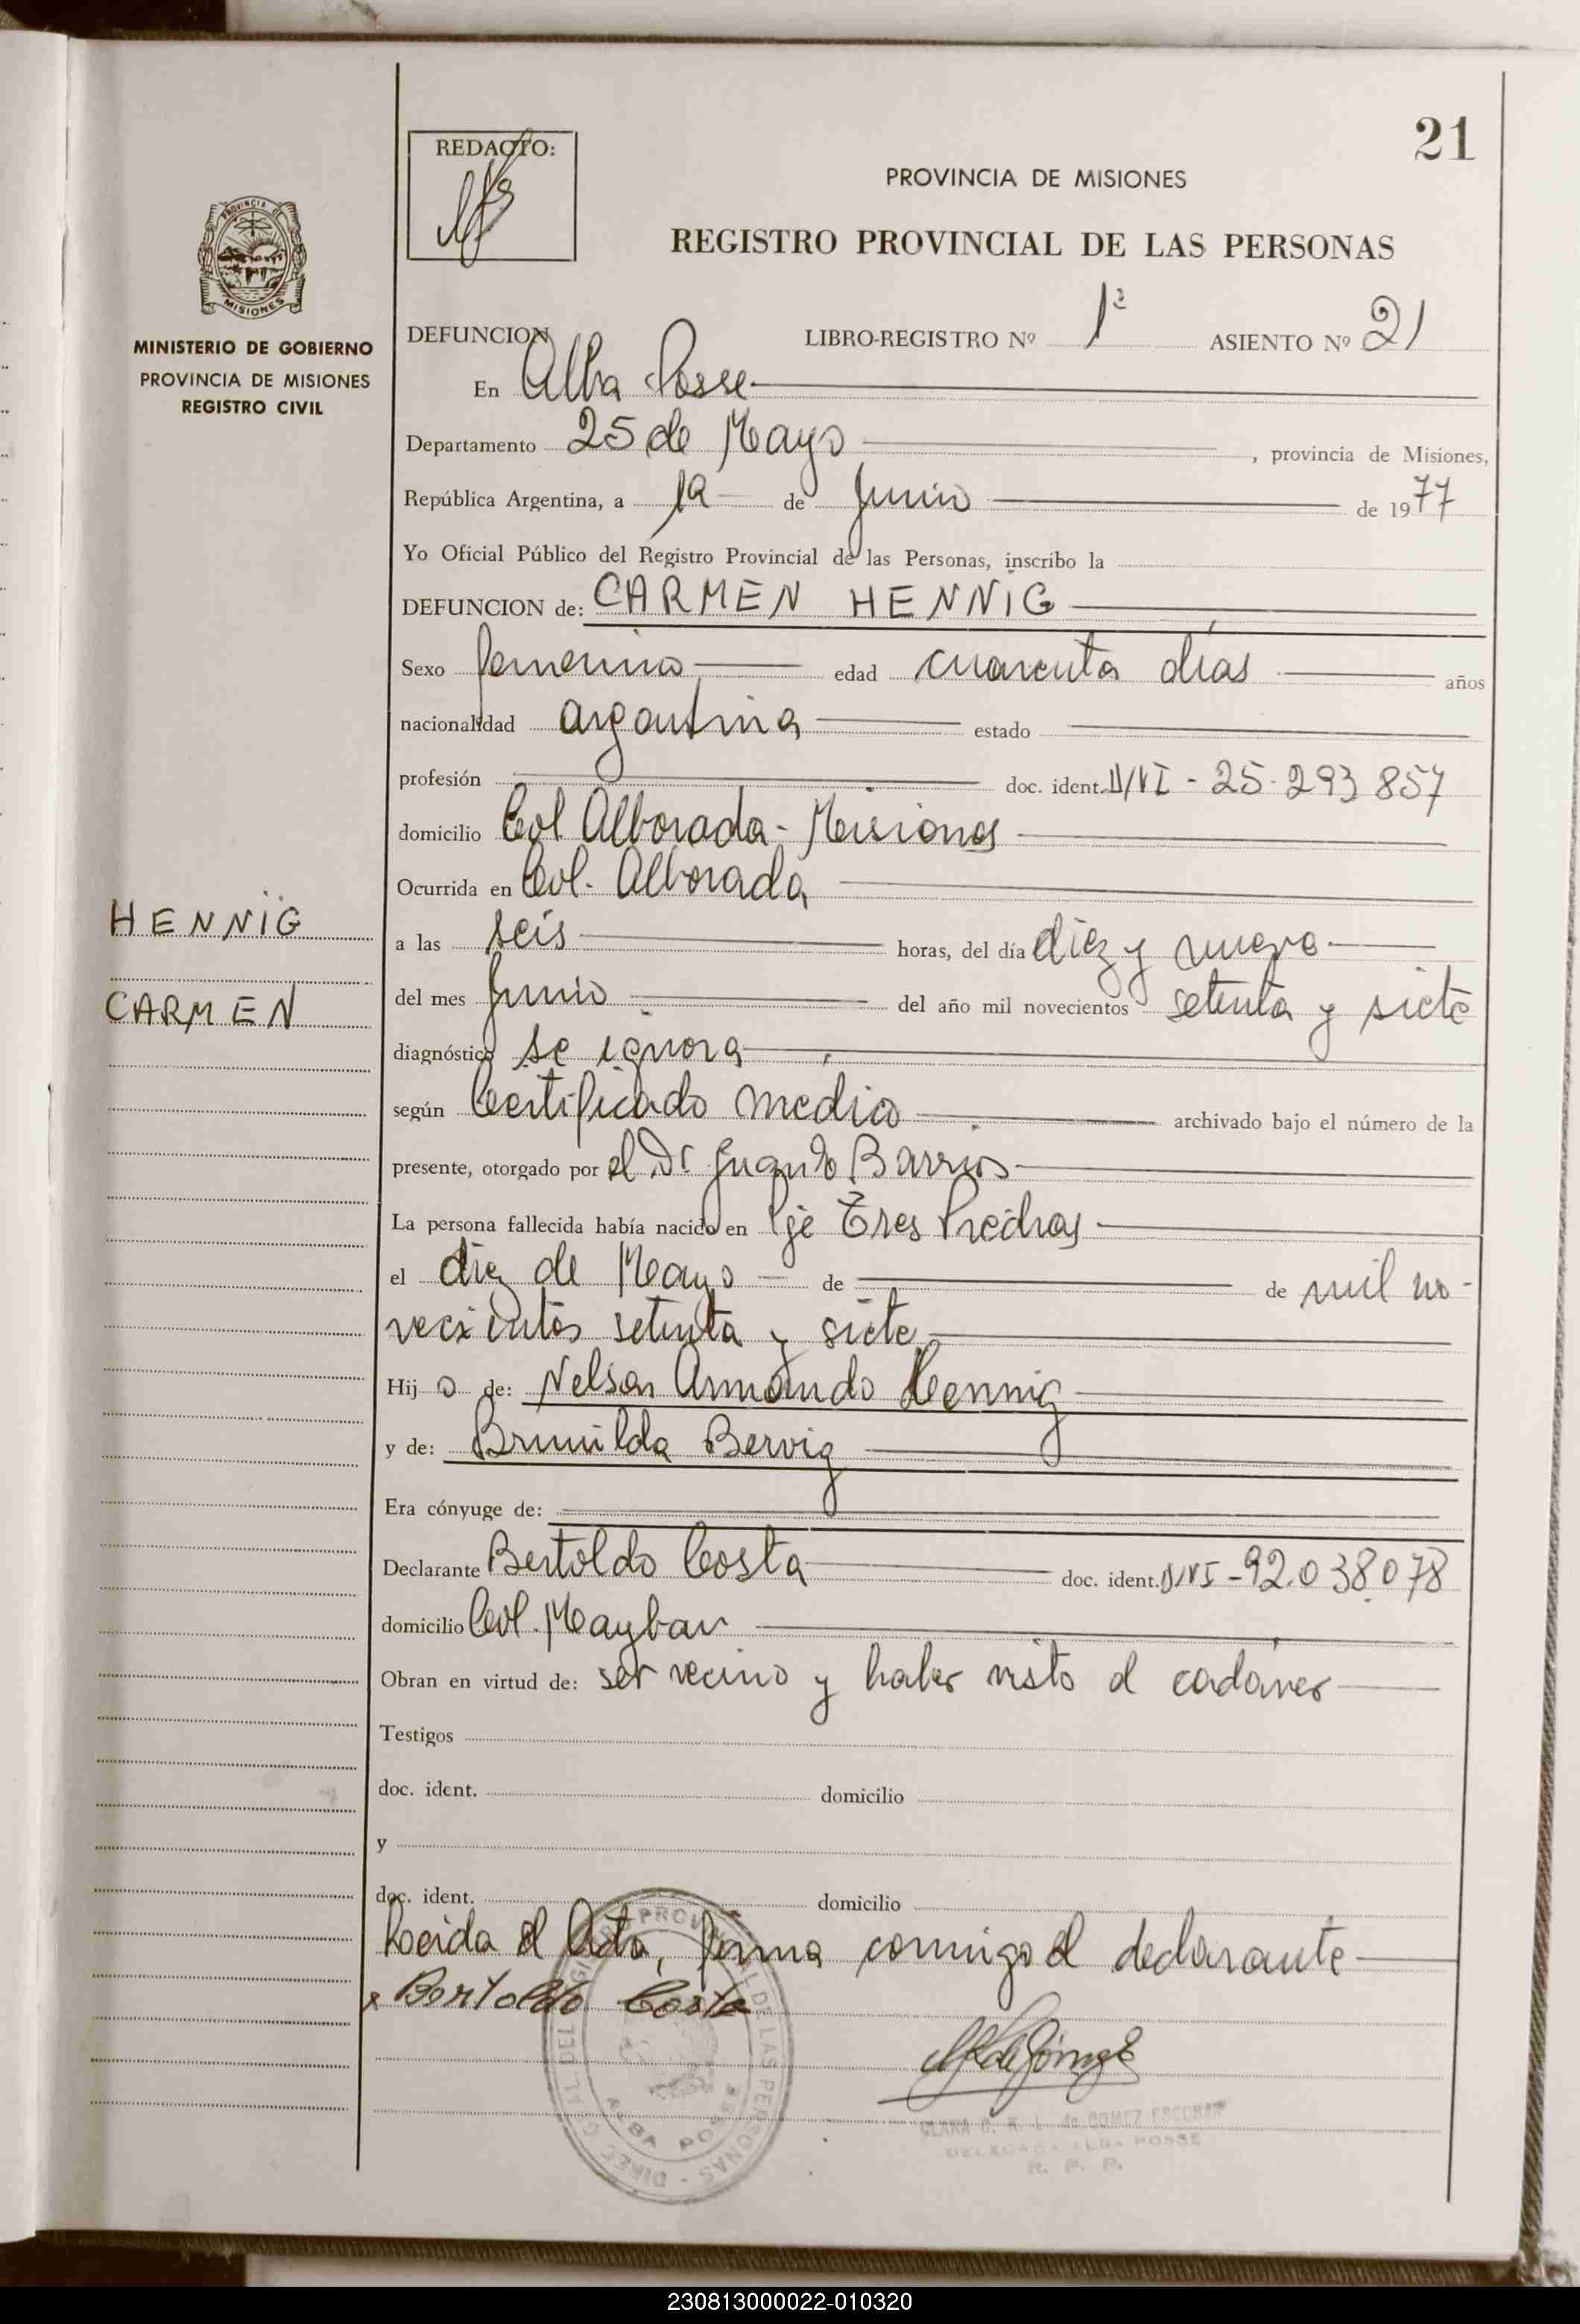 21
REDACTO:
PROVINCIA DE MISIONES
REGISTRO PROVINCIAL DE LAS PERSONAS
PROVINCIA D
MISIONES
MINISTERIO DE GOBIERNO
PROVINCIA DE MISIONES
REGISTRO CIVIL
DEFUNCION LIBRO-REGISTRO Nº 1º ASIENTO Nº 21
En Alba Posse
Departamento 25 de Mayo , provincia de Misiones,
República Argentina, a 19 de Junio de 1977
Yo Oficial Público del Registro Provincial de las Personas, inscribo la
DEFUNCION de: CARMEN HENNIG
Sexo femenino edad cuarenta días años
nacionalidad argentina estado
profesión doc. ident. DNI - 25-293857
domicilio Col Alborada - Misiones
Ocurrida en Col. Alborada
HENNIG
CARMEN
a las seis horas, del día diez y nueve
del mes Junio del año mil novecientos setenta y siete
diagnóstico se ignora
según Certificado medico archivado bajo el número de la
presente, otorgado por el Dr Barrios
La persona fallecida había nacido en Pje Tres Piedras
el diez de Mayo de de mil no-
vecientos setenta y siete
Hij o de: Nelson Armando Hennig
y de: Brunilda Bervig
Era cónyuge de:
Declarante Bertoldo Costa doc. ident. DNI - 92.038.078
domicilio Col. Mayban
Obran en virtud de: ser vecino y haber visto el cadáver
Testigos
doc. ident. domicilio
y
doc. ident. domicilio
Leida el Acta, firma conmigo el declarante
Bertoldo Costa
DIREC G AL DEL REGIS PROV AL DE LAS PERSONAS
ALBA POSSE
CLARA de GOMEZ ESCOBAR
DELEGADA ALBA POSSE
R. P. P.
230813000022-010320